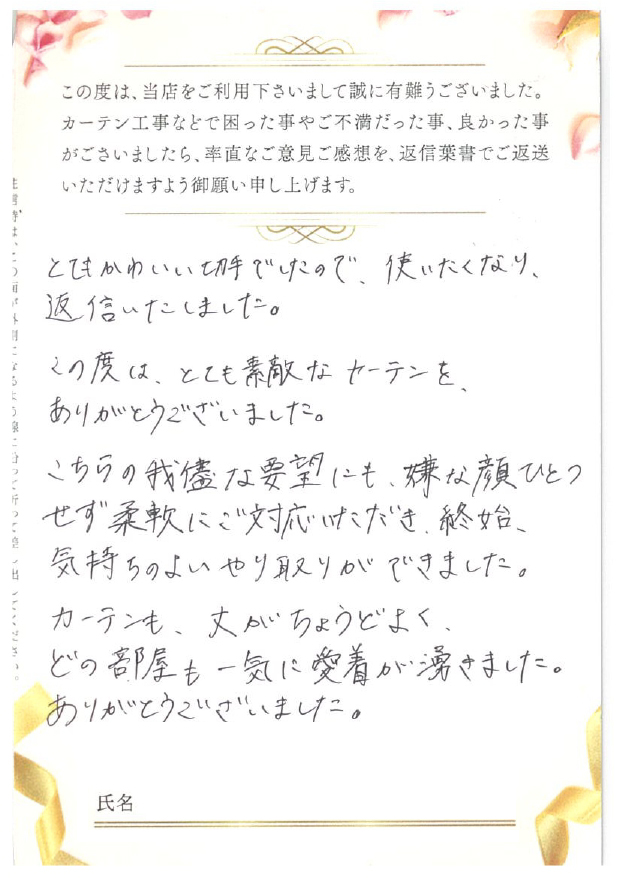 この度は、当店をご利用下さいまして誠に有難うございました。
カーテン工事などで困った事やご不満だった事、良かった事
がございましたら、率直なご意見ご感想を、返信葉書でご返送
いただけますよう御願い申し上げます。
とてもかわいい切手でしたので、使いたくなり、
返信いたしました。
この度は、とても素敵なカーテンを、
ありがとうございました。
こちらの我儘な要望にも、嫌な顔ひとつ
せず柔軟にご対応いただき、終始、
気持ちのよいやり取りができました。
カーテンも、丈がちょうどよく、
どの部屋も一気に愛着が湧きました。
ありがとうございました。
氏名